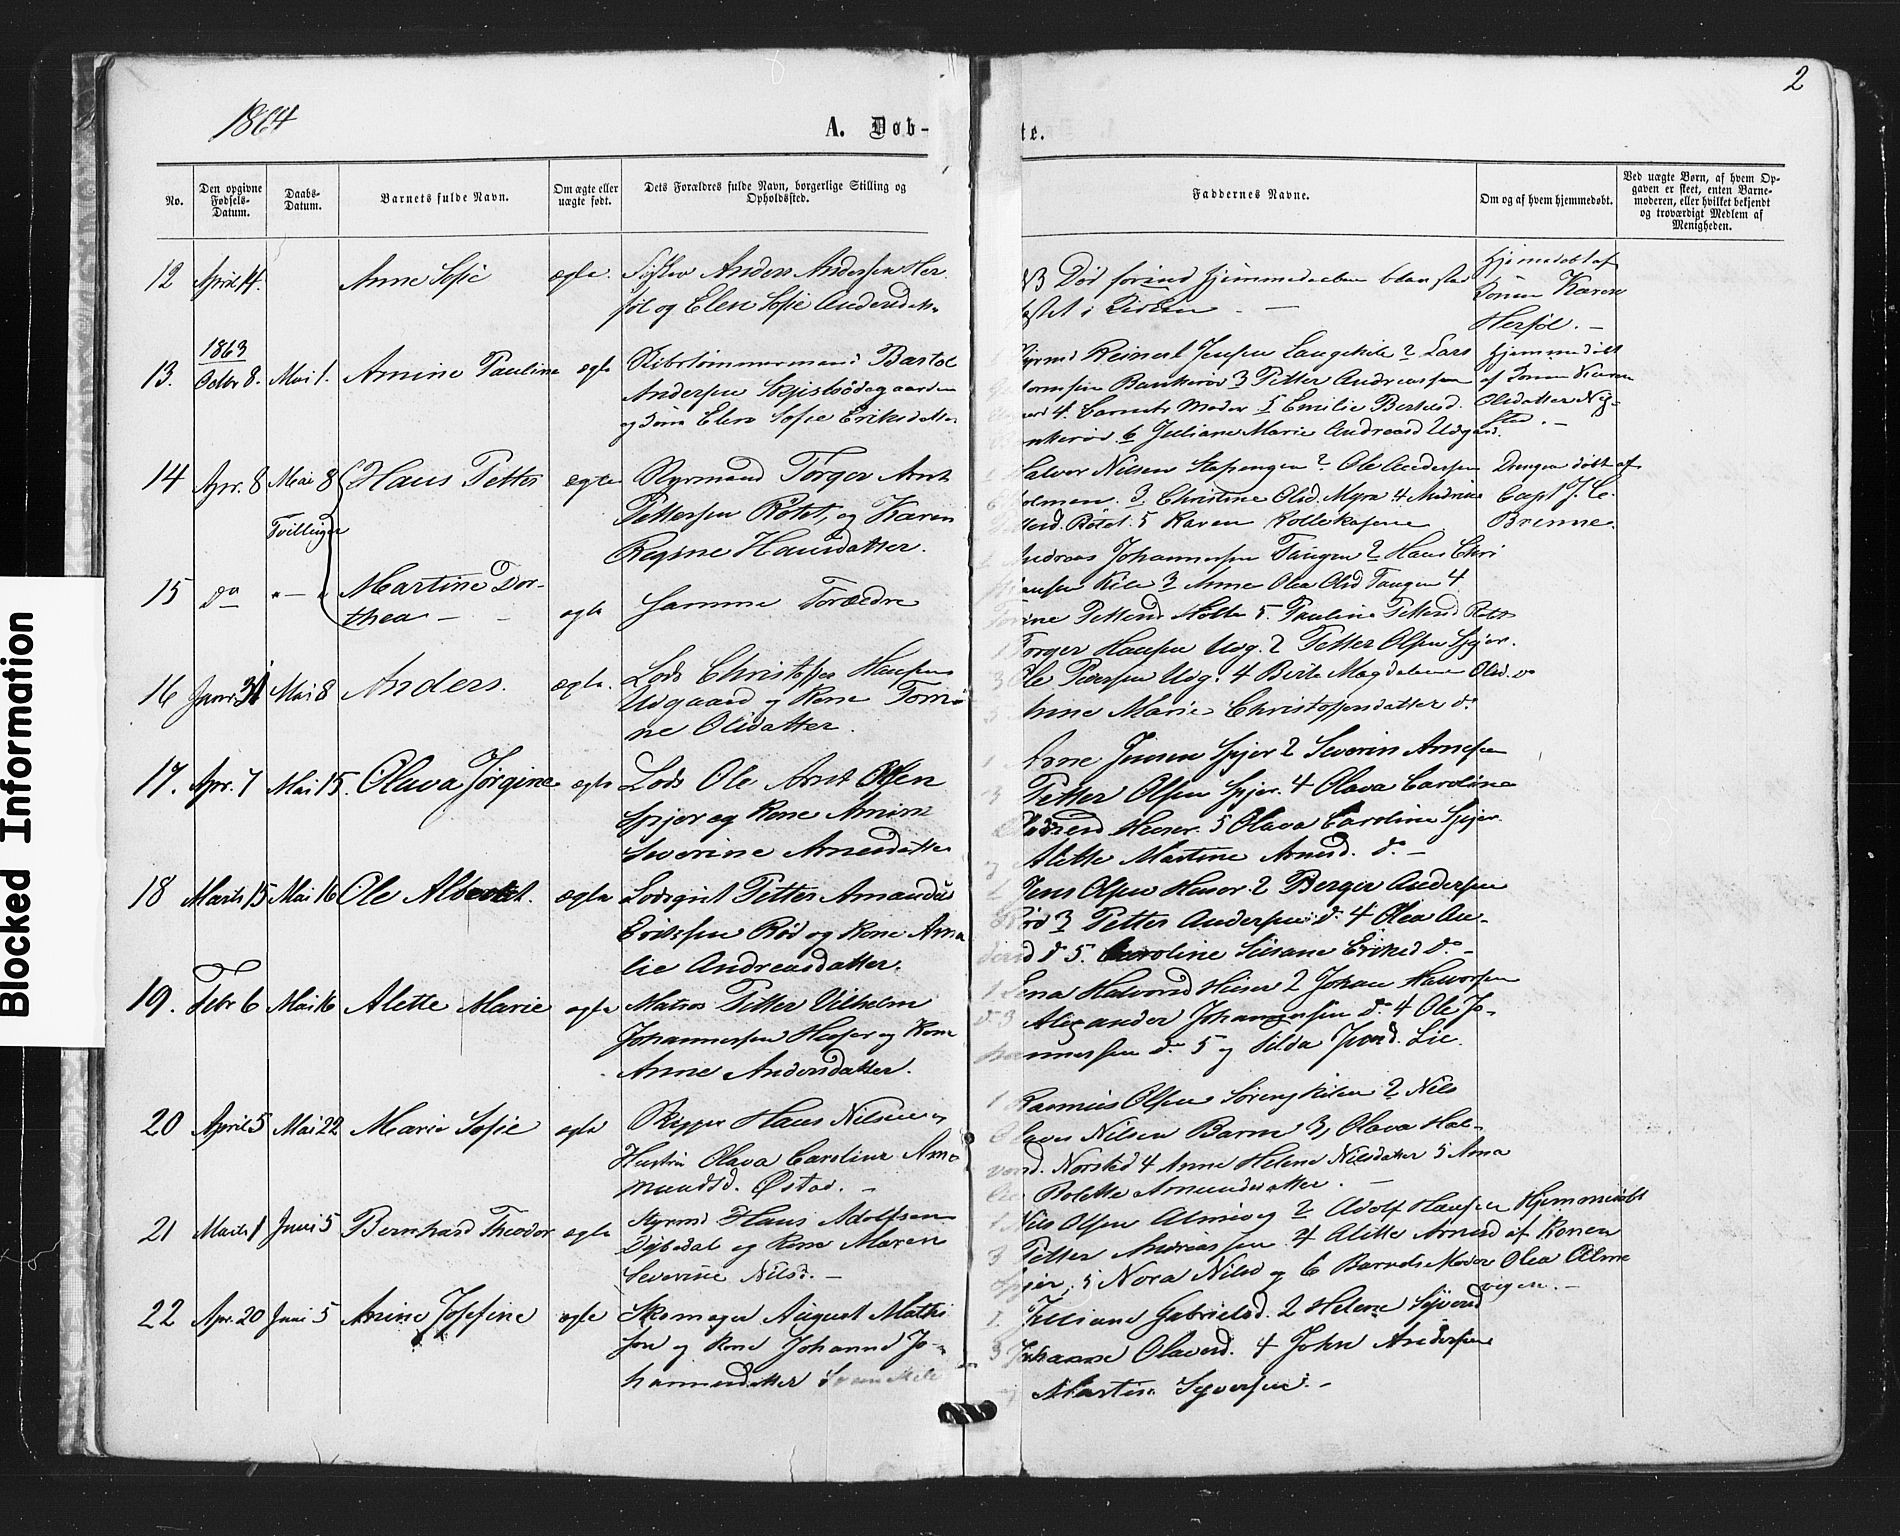 2
1864
A. Døb-
te.
No.
Den opgivne Fødsels-Datum.
Daabs-Datum.
Barnets fulde Navn.
Om ægte eller uægte født.
Dets Forældres fulde Navn, borgerlige Stilling og Opholdssted.
Faddernes Navne.
Om og af hvem hjemmedøbt.
Ved uægte Børn, af hvem Opgaven er skeet, enten Barnemoderen, eller hvilket bekjendt og troværdigt Medlem af Menigheden.
12 April 4. Anne Sofie ægte. Anders Andersen Her-
føl og Elen Sofie Andersdatter
Død forind hjemmedaaben
Hjemmedøbt af
Konen Karen
Herføl. -
1863
13. Octbr 8. Mai 1. Amine Pauline ægte Skibstømmermand Bastol
Andersen
og Kone Elen Sofie Eriksdatter
Reinert Jensen Langekile 2 Lars
Bankerød 3 Petter Andreassen
4. Barnets Moder 5 Emilie Bertelsd.
6 Juliane Marie Andreasd Udgaard.
Hjemmedøbt
af Konen Karen
Olsdatter
14 Apr. 8 Mai 8 Hans Petter ægte Styrmand Torger Arnt
Pettersen Rødt, og Karen
Regine Hansdatter.
Halvor Nilsen Stapengen 2 Ole Andersen
Holmen. 3. Christine Olsd. Myra 4 Andrine
Rødt. 5 Karen Kollekasene
Drengen døbt af
Capt J. C.
Brenne.
Tvillinger
15 do " - " Martine Dor-
thea - - ægte Samme Forældre
Andreas Johannessen Tangen 2 Hans Chri
Kile 3 Anne Olea Olsd Tangen 4
Pettersd Holte 5. Pauline Pettersd Rødt
16 Janr. 31 Mai 8 Anders. ægte. Lods Christoffer Hansen
Udgaard og Kone Tomi-
ne Olsdatter.
1 Torger Hansen Udg. 2 Petter Olsen Spjær.
3 Ole Pedersen Udg. 4 Berte Magdalene Olsd. do
Anne Marie Christoffersdatter do
17. Apr. 7 Mai 15. Olava Jørgine ægte Lods Ole Arnt Olsen
Spjær og Kone Amine
Severine Arnesdatter
1 Arne Jensen Spjær 2 Severin Arnesen
3 Petter Olsen Spjær. 4 Olava Caroline
5 Olava Caroline Spjær.
Alette Martine Arnesd. do -
18 Marts 15 Mai 16 Ole Albert. ægte Lodsgut Petter Amandus
Eriksen Rød og Kone Ama
lie Andreasdatter.
1 Jens Olsen Huser. 2 Berger Andersen
Rød 3 Petter Andersen do 4 Olea An-
dersd do 5. Caroline Susane Eriksd do -
19. Febr 6 Mai 16 Alette Marie ægte Matros Petter Vilhelm
Johannessen Huser og Kone
Anne Andersdatter.
1 Lena Halvorsd Huser 2 Johan Halvorsen
do 3 Alexander Johannessen do. 4 Ole Jo-
hannessen do 5 og Silda Lie.
20 April 5 Mai 22 Marie Sofie ægte Skipper Hans Nilsen og
Hustru Olava Caroline Am
mundsd. Østad. -
1 Rasmus Olsen Sørengkilen 2 Nils
Olaves Nilsen Barm 3, Olava Hal-
vorsd. Norsted 4 Anne Helene Nilsdatter 5 Anna
Bolette Amundsdatter. -
21 Marts 1 Juni 5 Bernhard Theodor ægte Styrmd Hans Adolfsen
Dybedal og Kone Maren
Severine Nilsd. -
1 Nils Olsen Almevig 2 Adolf Hansen
3 Petter Andreassen 4 Alette Arnesd
Spjær. 5 Nora Nilsd og 6 Barnets Moder
Hjemmedøbt
af Konen
Olea Alme
vigen. -
22 Apr. 20 Juni 5 Anine Josefine ægte Skomager August Mathi
sen og Kone Johanne Jo-
hannesdatter
1. Juliane Gabrielsd. 2 Helene Syversd
3 Johanne Olavesd. 4 John Andersen
Martin Syversen. -
Blocked Information